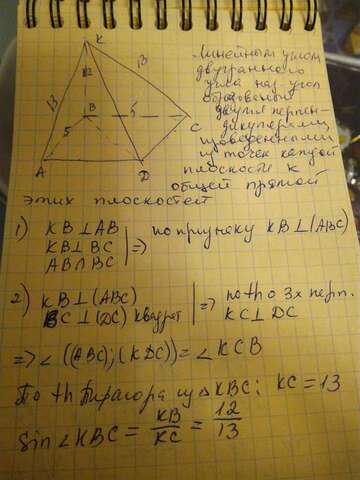 K
13
12
13
B
5
5
C
A
D
Линейным углом
двугранного
угла наз. угол
образованый
двумя перпен-
дикулярами,
проведенными
из точек каждой
плоскости к
общей прямой
этих плоскостей
1) KB⊥AB
KB⊥BC
AB∩BC
=> по призναку KB⊥(ABC)
2) KB⊥(ABC)
BC⊥(DC) квадрат
=> по th о 3х перп.
KC⊥DC
=> ∠((ABC);(KDC))=∠KCB
По th Пифагора из ΔKBC: KC=13
Sin∠KBC = KB/KC = 12/13